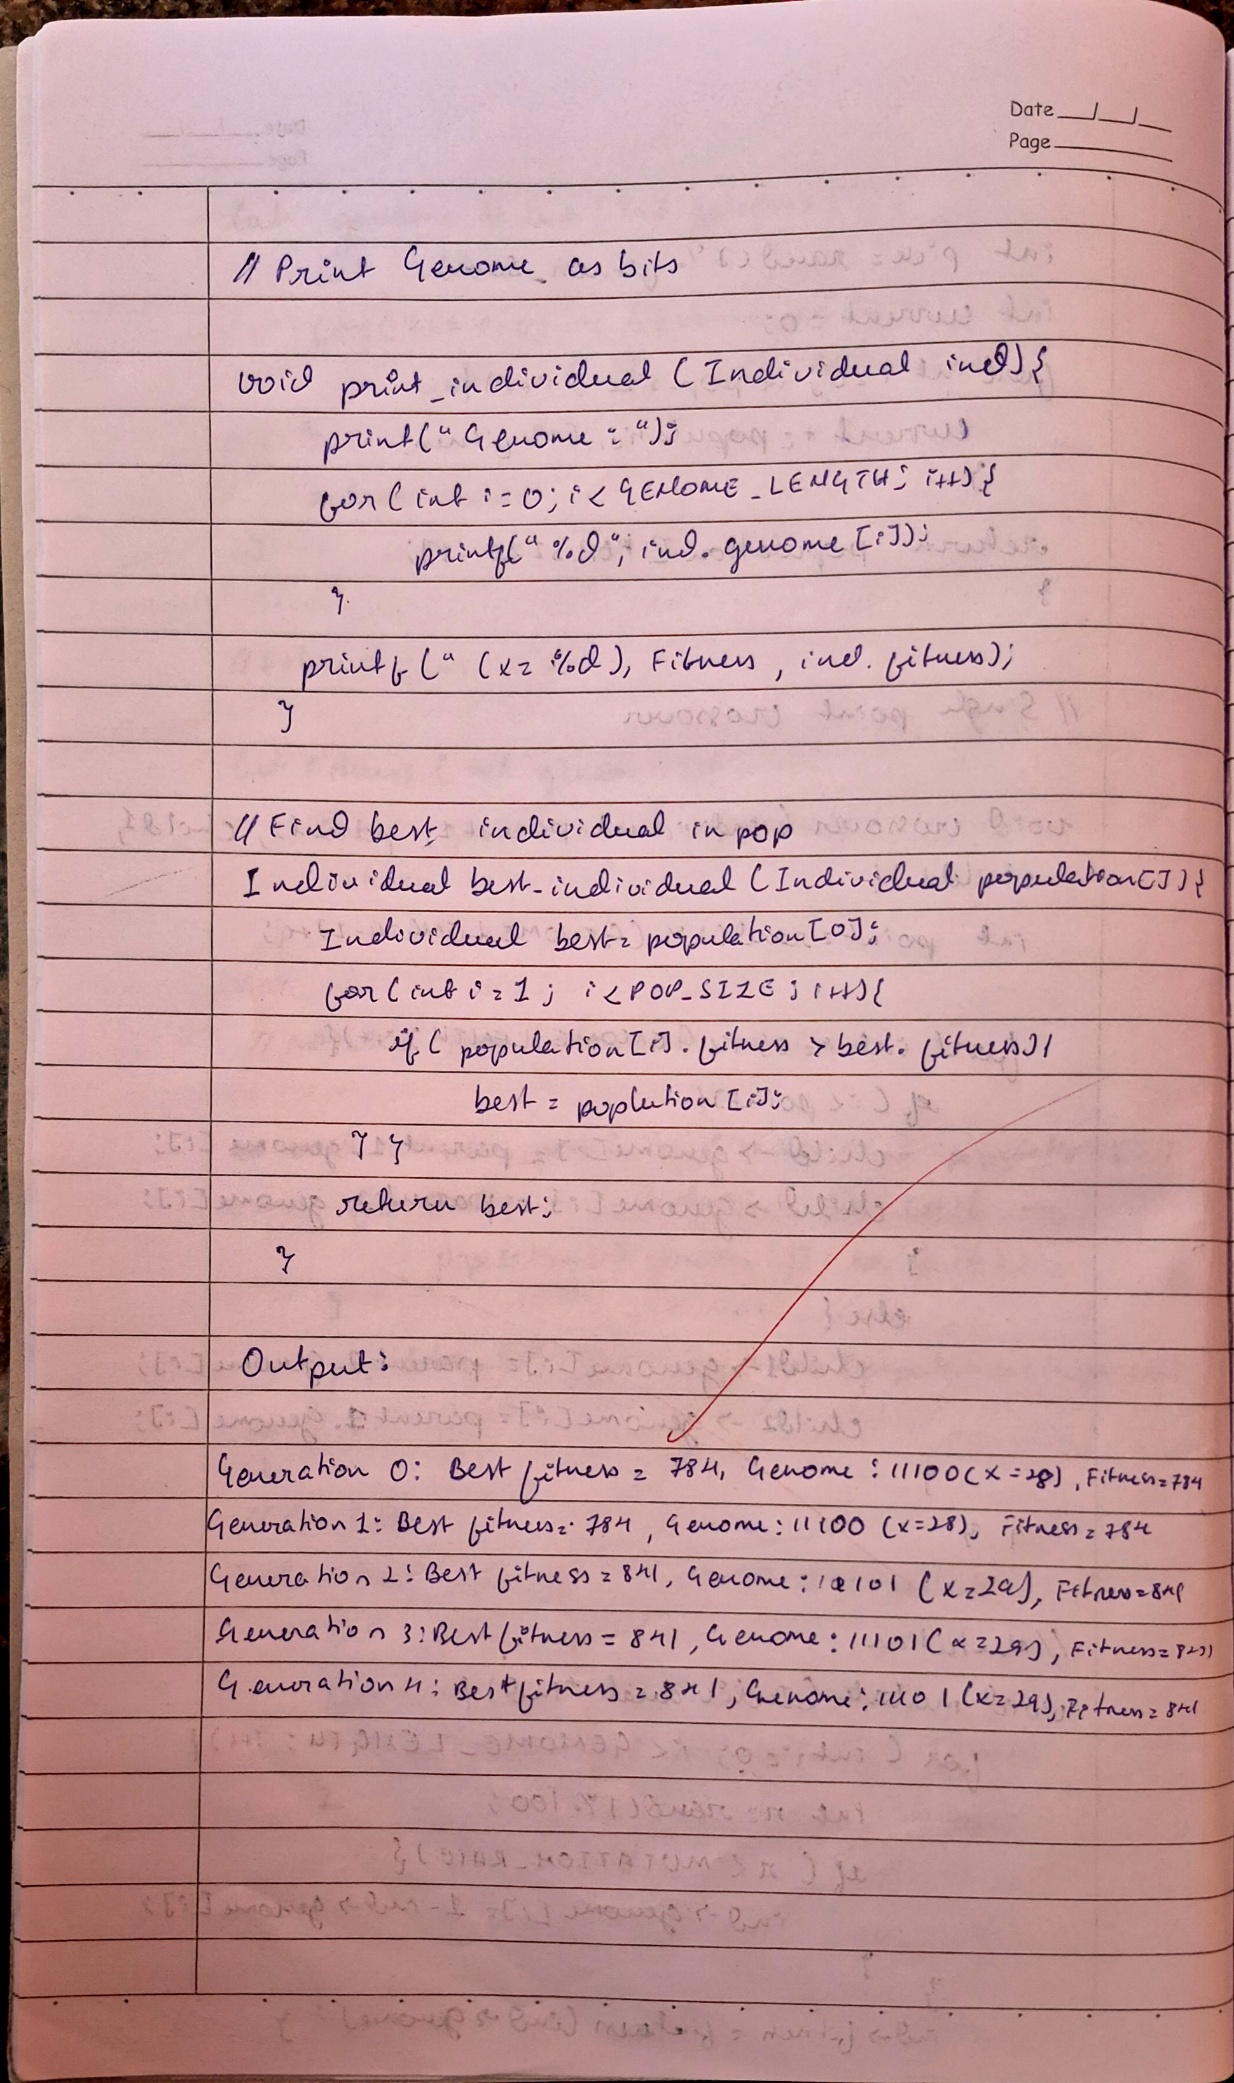 Date __/__/__
Page
// Print Genome as bits
void print_individual (Individual ind) {
print(" Genome : ");
for(int i=0; i< GENOME_LENGTH; i++) {
printf(" %d", ind. genome [i]);
}
printf (" (x= %d), Fitness , ind. fitness);
}
// Find best individual in pop
Individual best-individual (Individual population[]) {
Individual best= population[0];
for(int i=1; i<POP_SIZE; i++){
if( population[i]. fitness > best. fitness){
best = poplution [i];
} }
return best;
}
Output:
Generation 0: Best fitness = 784, Genome : 11100(x=28), Fitness=784
Generation 1: Best fitness= 784, Genome: 11100 (x=28), Fitness=784
Generation 2: Best fitness = 841, Genome: 11101 (x=29), Fitness=841
Generation 3: Best fitness = 841, Genome: 11101 (x=29), Fitness=841
Generation 4: Best fitness = 841, Genome: 11101 (x=29), Fitness= 841